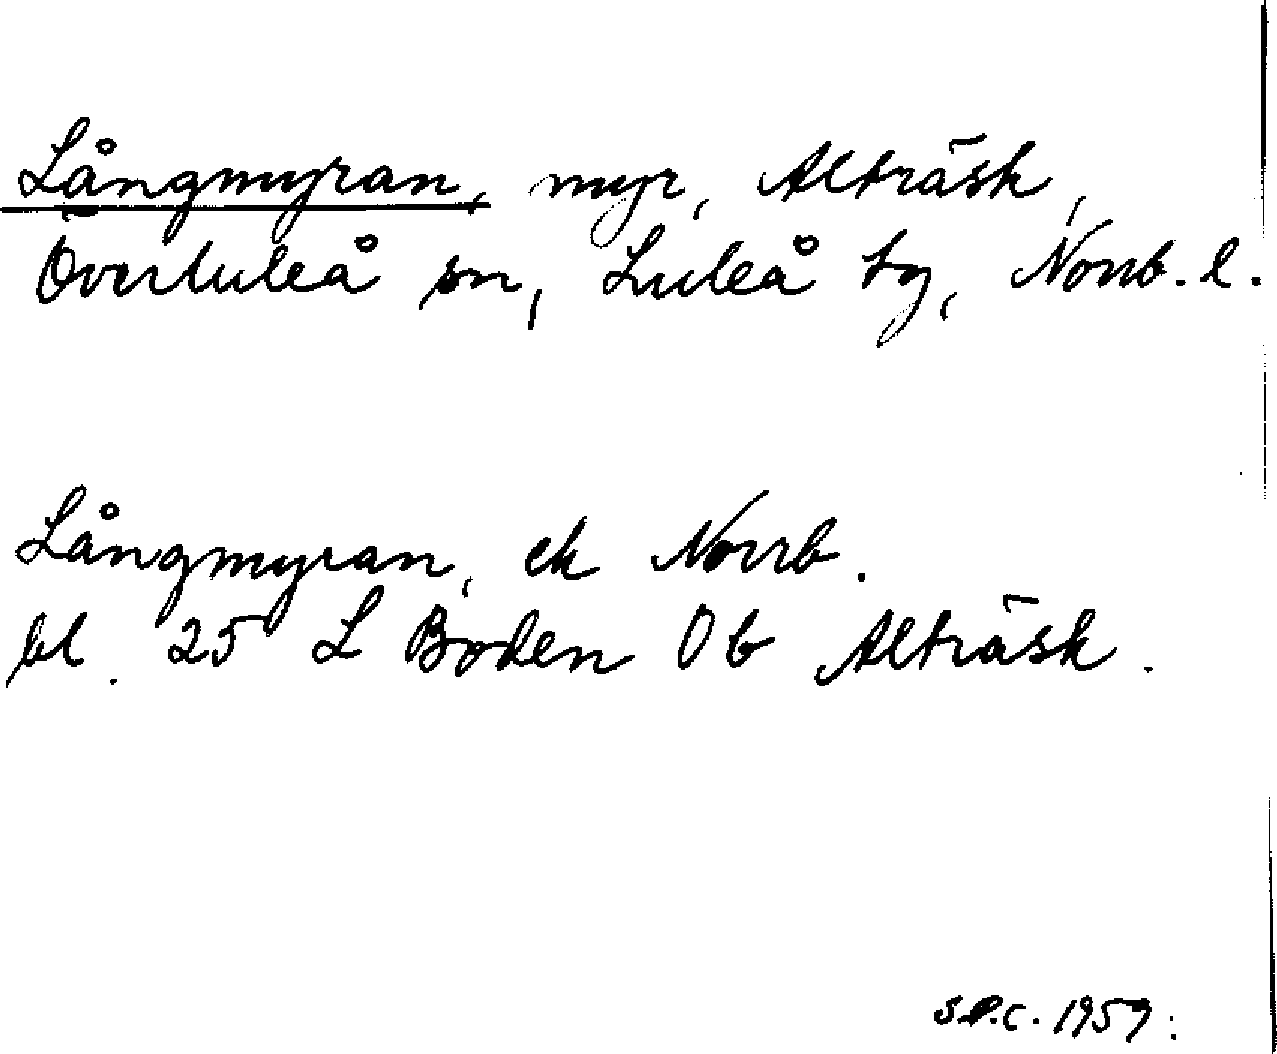 Långmyran, myr, Alträsk,
Överluleå sn, Luleå tg, Norrb. l.
Långmyran, ek Norrb.
bl. 25 L Boden Ob Alträsk.
S.P.C. 1959.